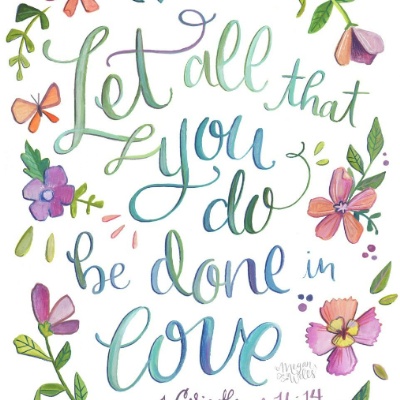 Let all that
you
do
be done in
love
Megan
Wells
16:14